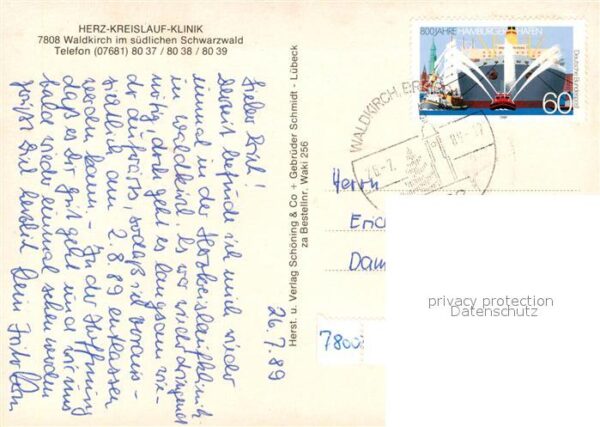 HERZ-KREISLAUF-KLINIK
7808 Waldkirch im südlichen Schwarzwald
Telefon (07681) 80 37 / 80 38 / 80 39
26.7.89
Lieber Erich!
Derzeit befinde ich mich wieder
einmal in der Herzkreislaufklinik
in Waldkirch. Es war nicht dringend
nötig, doch geht es langsam wie-
der aufwärts, sodaß ich voraus-
sichtlich am 2.8.89 entlassen
werden kann. – In der Hoffnung
daß es Dir gut geht und wir uns
bald wieder einmal sehen werden
grüßt Dich herzlich Dein
Herst. u. Verlag Schöning & Co + Gebrüder Schmidt - Lübeck
za Bestellnr. Waki 256
800 JAHRE HAMBURGER HAFEN
Deutsche Bundespost
60
WALDKIRCH, BR
Herrn
Eric
Dam
7800
privacy protection
Datenschutz